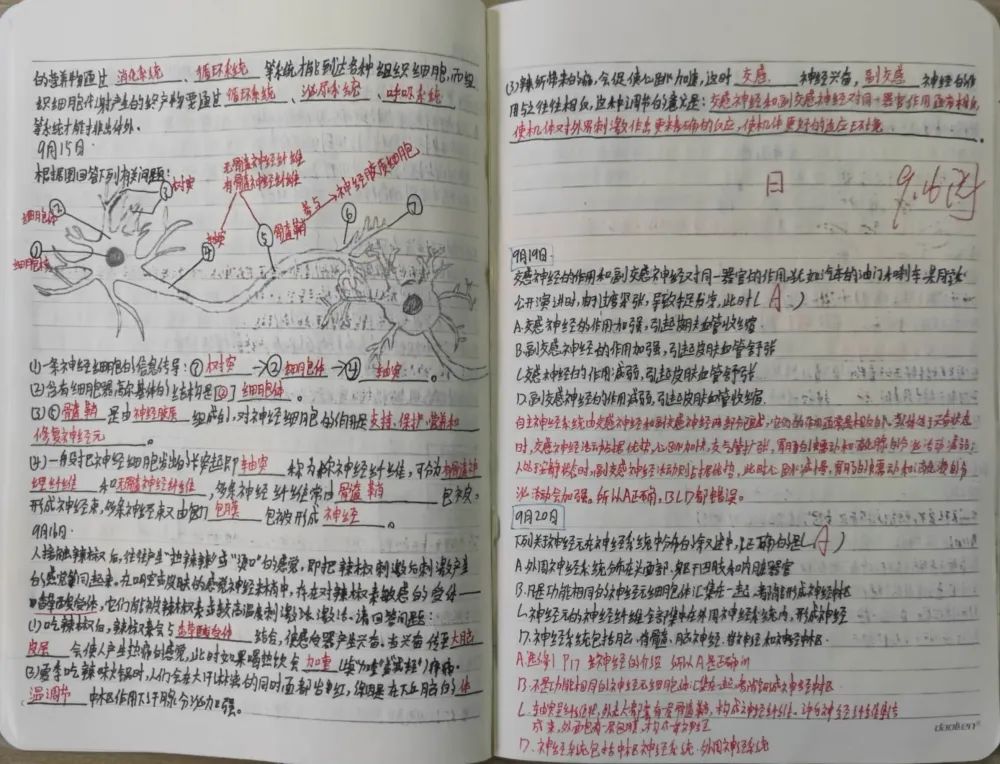 的营养物通过 消化系统 、 循环系统 等系统才能到达各种组织细胞,而组
织细胞代谢产生的代谢产物要通过 循环系统 、 泌尿系统 、 呼吸系统
等系统才能排出体外。
9月15日:
根据图回答下列有关问题:
无髓鞘神经纤维
有髓鞘神经纤维
③ 树突
参与 神经胶质细胞
细胞体 ②
⑥ ⑦
① 细胞核
④ 轴突
⑤ 髓鞘
(1)一条神经细胞的信息传导: ① 树突 →② 细胞体 →④ 轴突 。
(2)含有细胞器高尔基体的结构是[②] 细胞体 。
(3)⑤ 髓鞘 是由 神经胶质 组成的,对神经细胞的作用是 支持、保护、营养和
修复神经元 。
(4)一般把神经细胞发出的长突起即 轴突 称为称神经纤维,可分为 有髓鞘神
经纤维 和 无髓鞘神经纤维 ,多条神经纤维常由 髓鞘 包被
形成神经束,多条神经束又由 包膜 包被形成 神经 。
9月16日:
人接触辣椒后,往往产生“热辣辣”或“烫口”的感觉,即把辣椒刺激和
的感觉等同起来,在口腔或皮肤的感觉神经末梢中,存在对辣椒素敏感的受体——
香草酸受体,它们能被辣椒素或较高温度刺激激活。请回答问题:
(1)吃辣椒后,辣椒素会与 香草酸受体 结合,使感受器产生兴奋,当兴奋传至 大脑
皮层 会使人产生热痛的感觉,此时如果喝热饮会 加重
(2)夏季吃辣味火锅时,人们会在大汗淋漓的同时面部出红,原因是在下丘脑的 体
温调节 中枢作用下汗腺分泌加强。
(3)辣所带来的痛,会促使心跳加速,这时 交感 神经兴奋, 副交感 神经的作
用往往相反,这种调节的意义是: 交感神经和副交感神经对同一器官作用通常相反,
使机体对外界刺激作出更精确的反应,使机体更好的适应环境 。
日
9.16
9月19日
交感神经的作用和副交感神经对同一器官的作用,犹如汽车的油门和刹车,某同学
公开演讲时,由于过度紧张,导致手足发凉,此时( A )
A.交感神经的作用加强,引起皮肤血管收缩
B.副交感神经的作用加强,引起皮肤血管舒张
C.交感神经的作用减弱,引起皮肤血管舒张
D.副交感神经的作用减弱,引起皮肤血管收缩
自主神经系统由交感神经和副交感神经两部分组成,它们的作用通常是相反的。当人体处于兴奋状态
时,交感神经活动占据优势,心跳加快,支气管扩张,胃肠的蠕动和消化腺的分泌活动减弱;
人处于安静状态时,副交感神经活动则占据优势,此时心跳减慢,胃肠的蠕动和消化液的分
泌活动会加强。所以A正确,B、C、D都错误。
9月20日
下列关于神经元在神经系统中分布的叙述中,正确的是( A )
A.外周神经系统分布在头面部、躯干四肢和内脏器官
B.凡是功能相同的神经元细胞体汇集在一起,都构成神经中枢
C.神经元的神经纤维全部集中在外周神经系统内,形成神经
D.神经系统包括脑、脊髓、脑神经、脊神经和神经中枢
B.不是功能相同的神经元细胞体汇集在一起,都构成神经中枢
D.神经系统包括中枢神经系统、外周神经系统